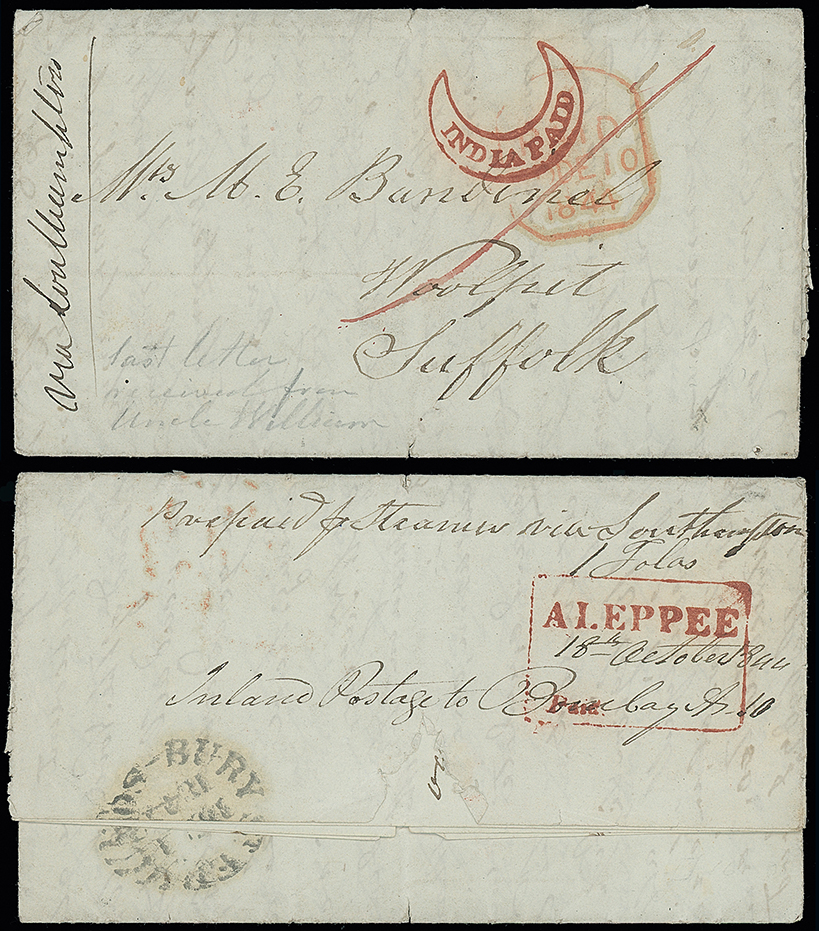 via Southampton
INDIA PAID
DE 10
1844
Mrs M. E. Bandinel
Woolpit
Suffolk
last letter
received from
Uncle William
Prepaid pr Steamer via Southampton
1 Tolas
ALEPPEE
18th October 1844
Paid
Inland Postage to Bombay As 10
BURY ST EDMUNDS